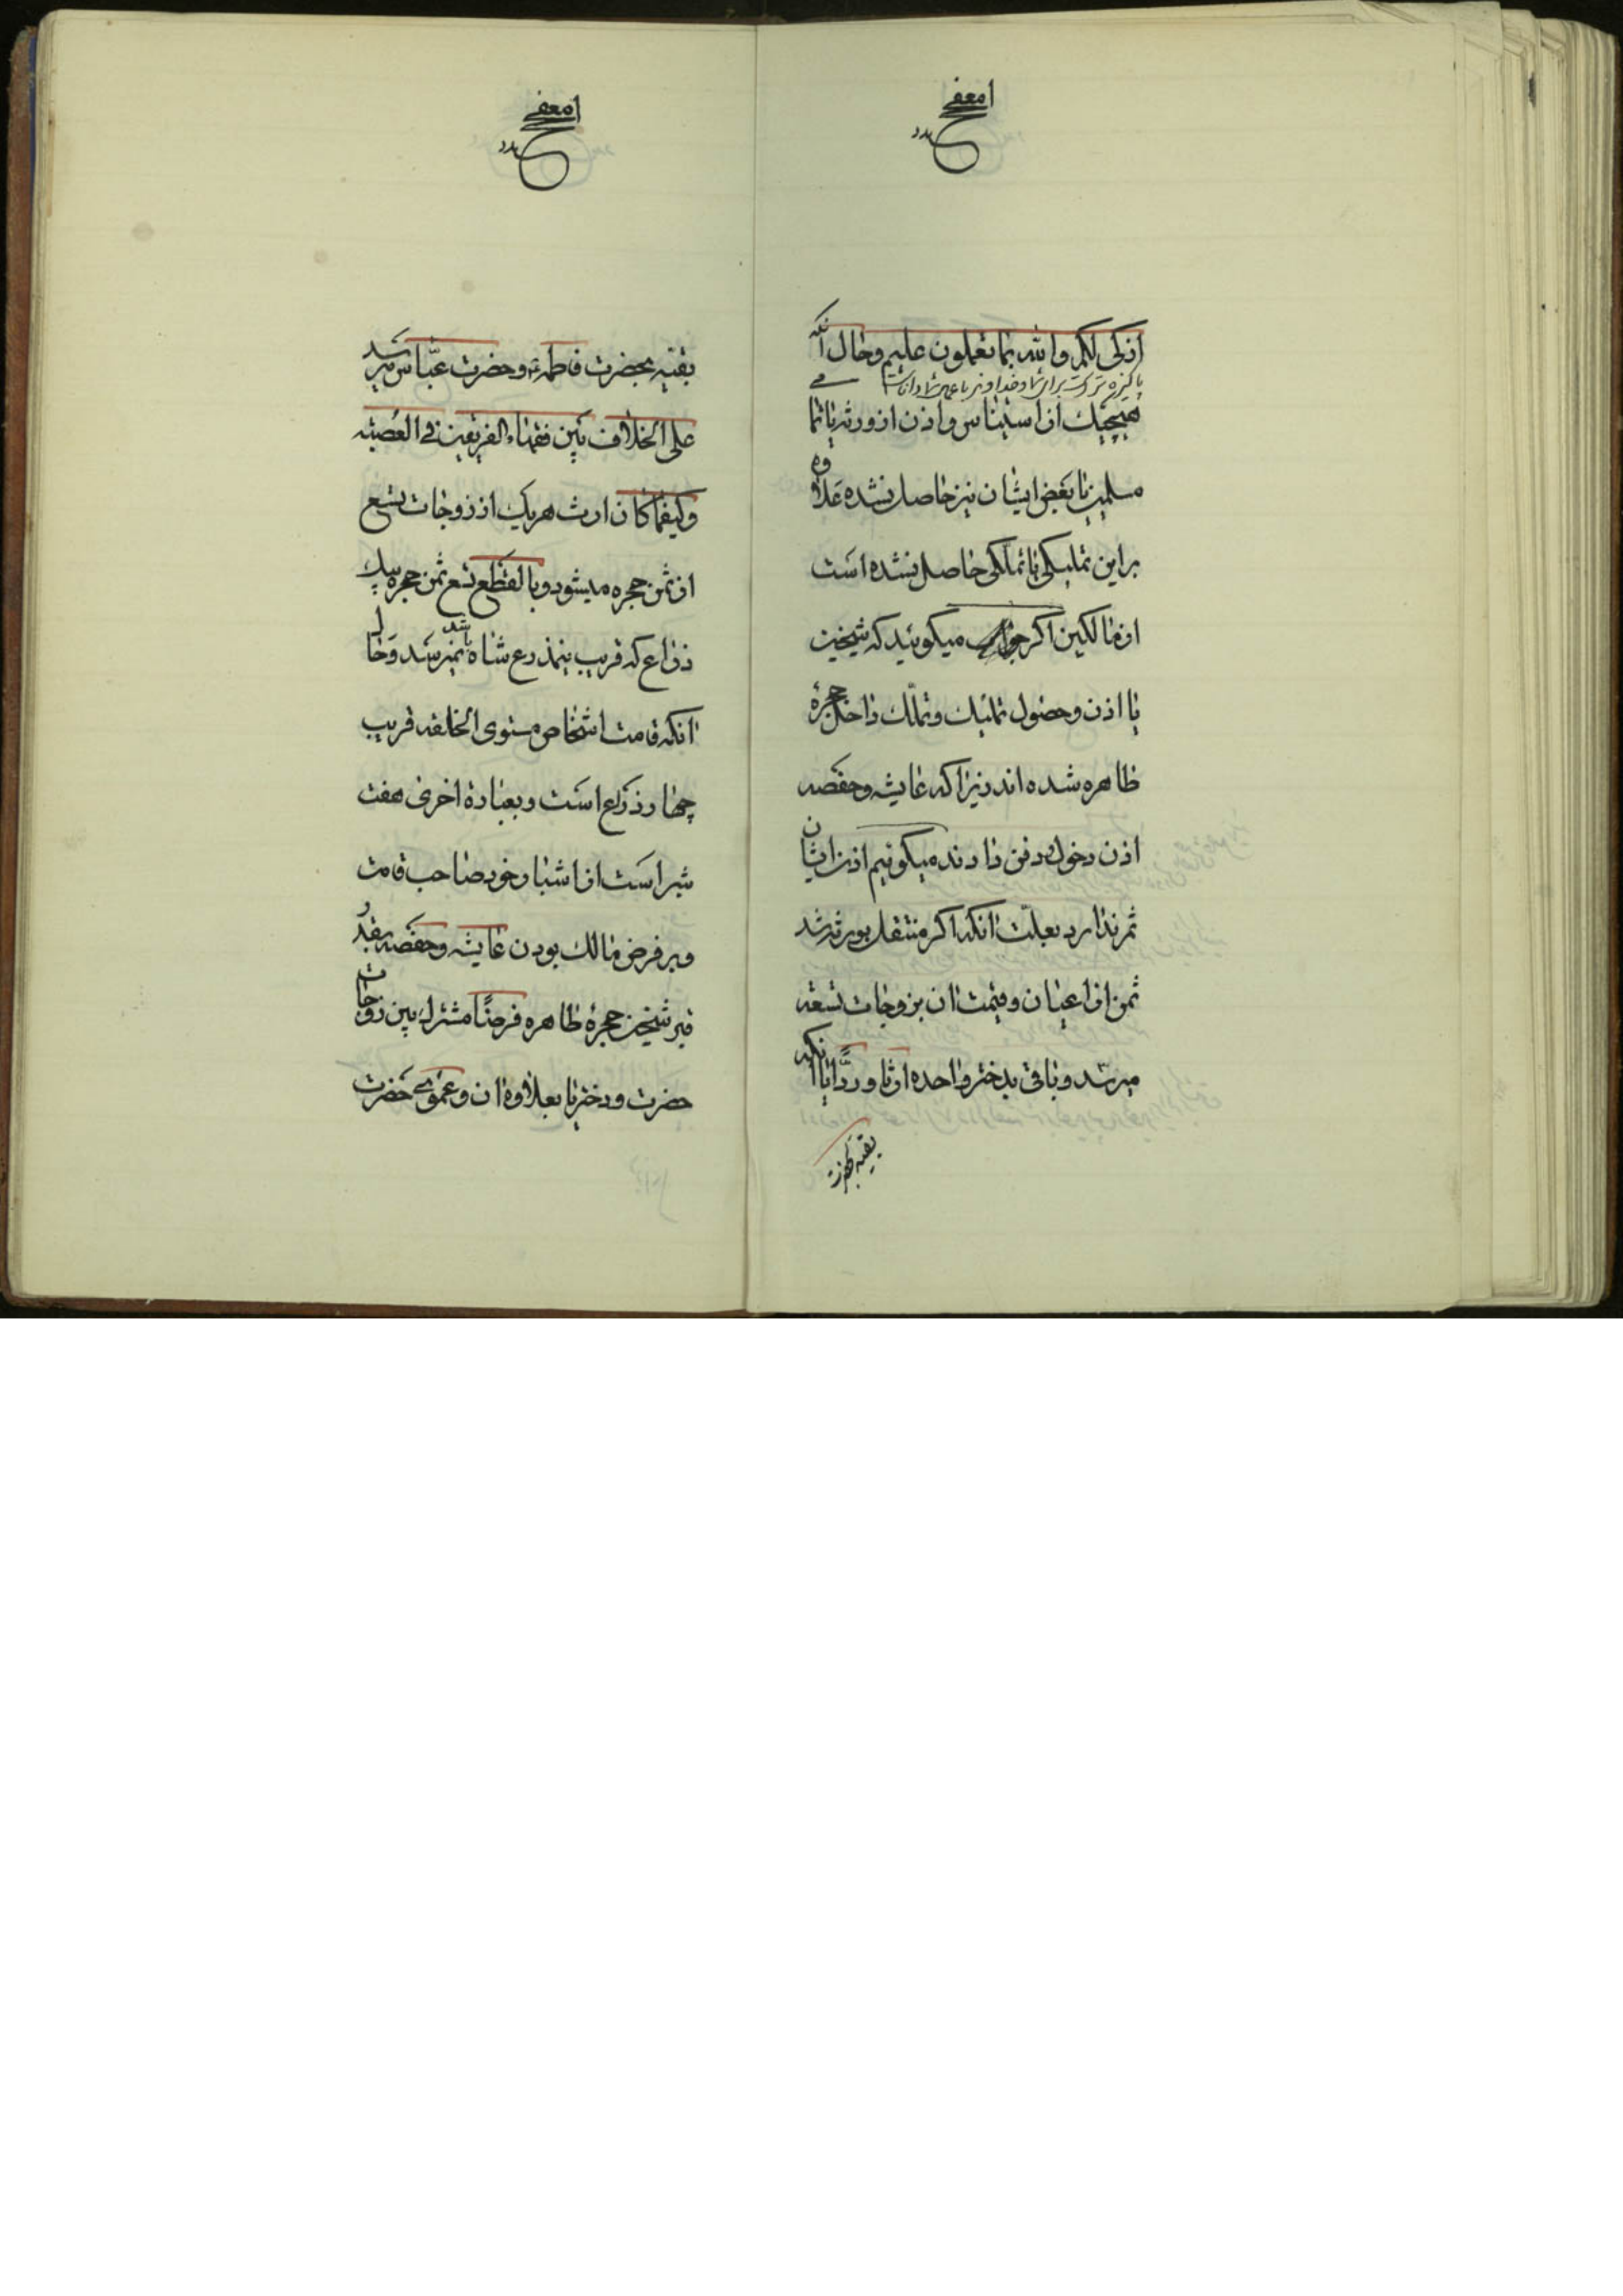 ازکی لکم والله بما تعملون علیم وحال آنکه
پاکیزه تر است برای شما و خداوند با عمل شما دانا است
هیچیک از استیناس و اذن از ورثه یا تمام
مسلمین یا بعض ایشان نیز حاصل نشده علاوه
بر این تملیکی یا تملکی حاصل نشده است
از مالکین اکر جواب میکوئید که شیخین
با اذن وحصول تملیک وتملک داخل حجرهٔ
طاهره شده اند زیرا که عایشه وحفصه
اذن دخول ودفن دادند میکوئیم اذن ایشان
ثمر ندارد بعلّت انکه اکر منتقل بورثه شد
ثمن از اعیان وقیمت ان بزوجات تسعه
میرسد وباقی بدختر واحده ارثا وردّا یا انکه
بقیه بحضرت
بقیه بحضرت فاطمه وحضرت عبّاس میرسد
علی الخلاف بین فقهاء الفریقین فی العصبه
وکیفما کان ارث هریک از زوجات تسع
از ثمن حجره میشود وبالقطع تسع ثمن حجره بیک
ذراع که قریب بنیم ذرع شاه باشد نمیرسد وحال
انکه قامت اشخاص مستوی الخلقه قریب
چهار ذراع است وبعبارة اخری هفت
شبر است از اشبار خود صاحب قامت
وبر فرض مالک بودن عایشه وحفصه بقدر
قبر شیخین حجرهٔ طاهره فرضًا مشترک بین زوجات
حضرت ودختر یا بعلاوه ان وعموی حضرت